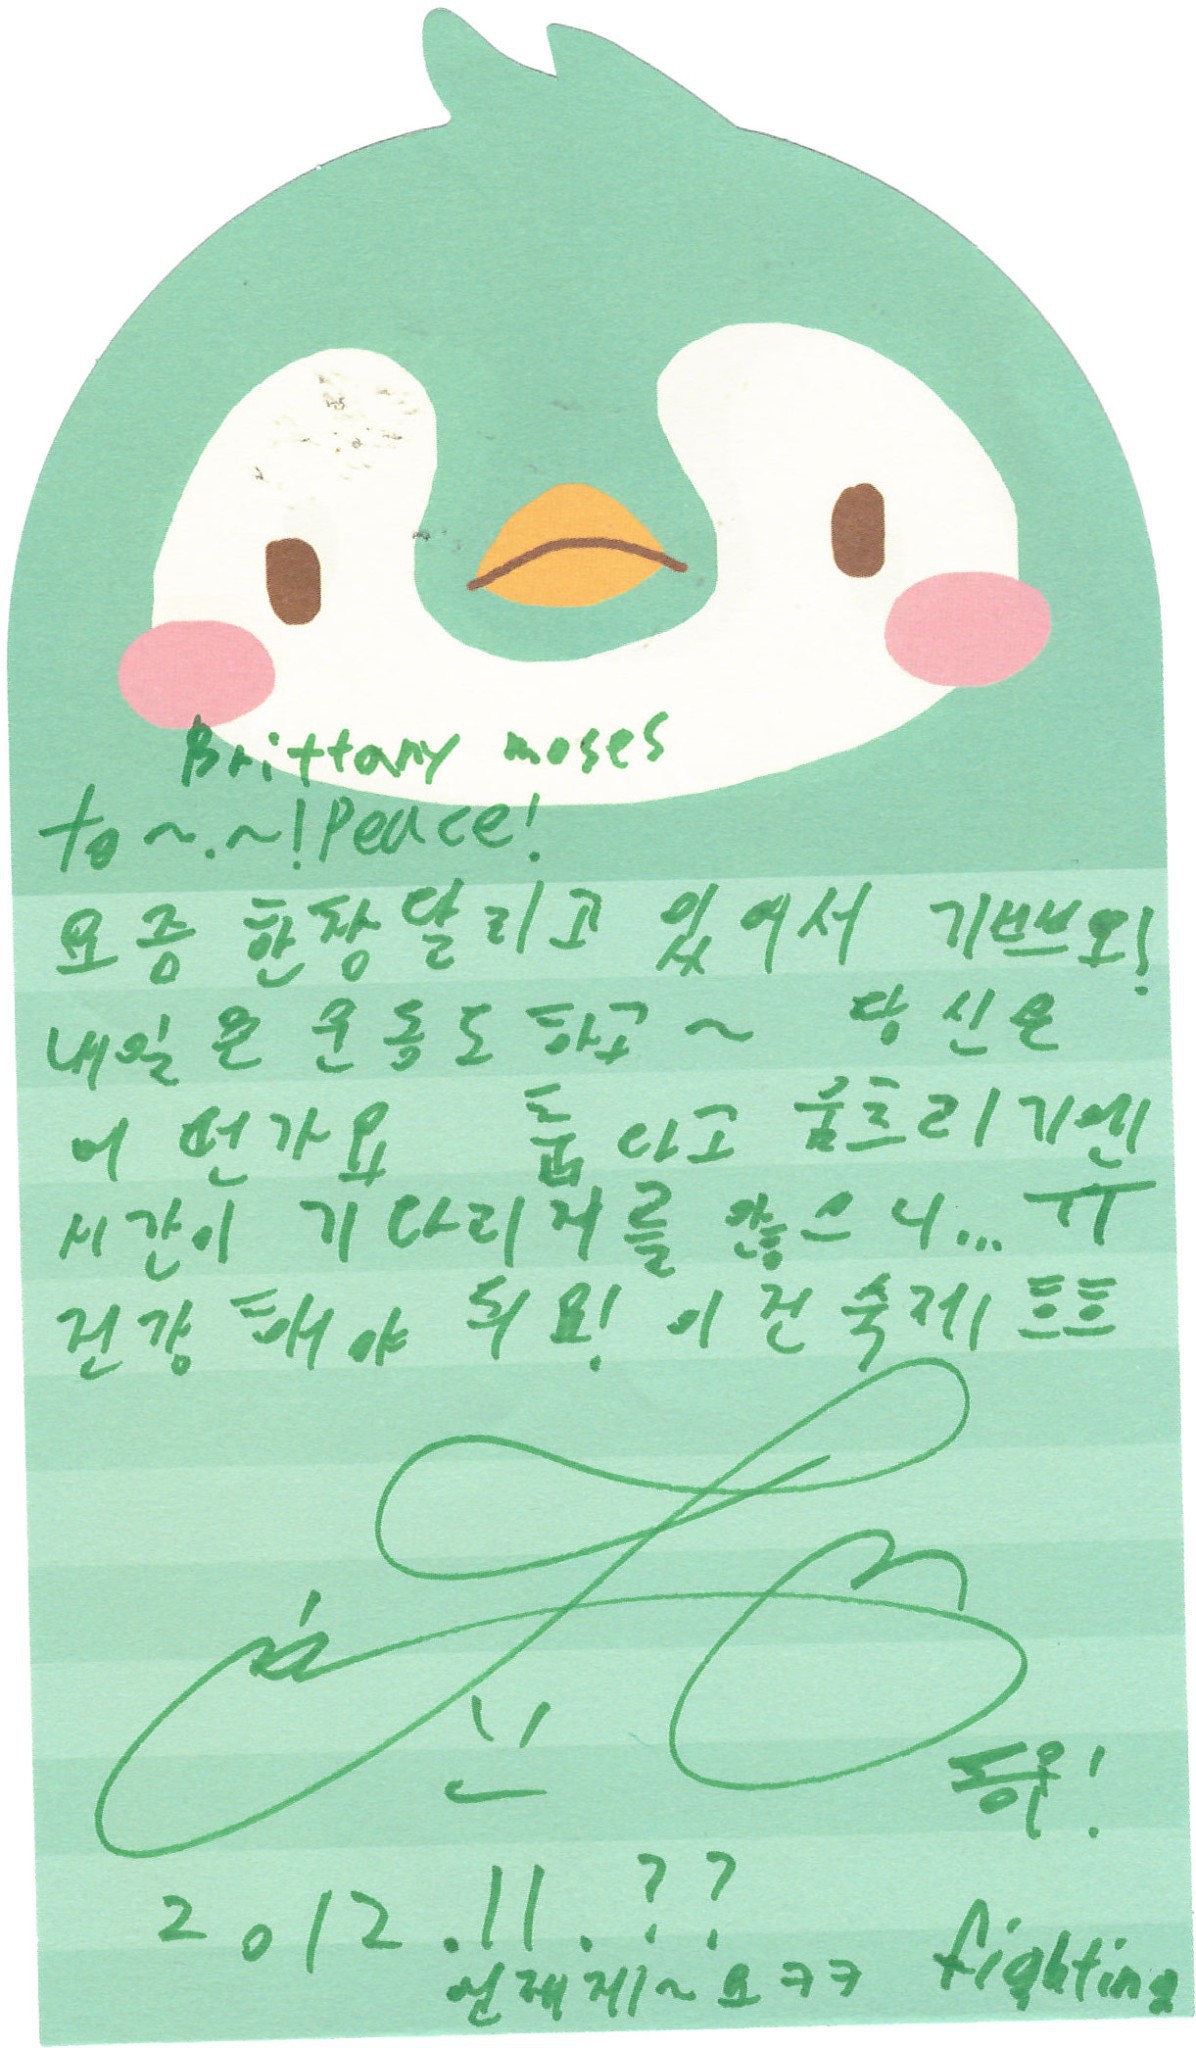 Brittany moses
to~.~! Peace!
요즘 한창 달리고 있어서 기쁘오!
내일은 운동도 하고~ 당신은
어떤가요 춥다고 움츠리기엔
시간이 기다리지를 않으니... ㅠ
건강해야 되요! 이건 숙제! 흐흐
신
동욱!
2012.11.??
언제게~요ㅋㅋ fighting